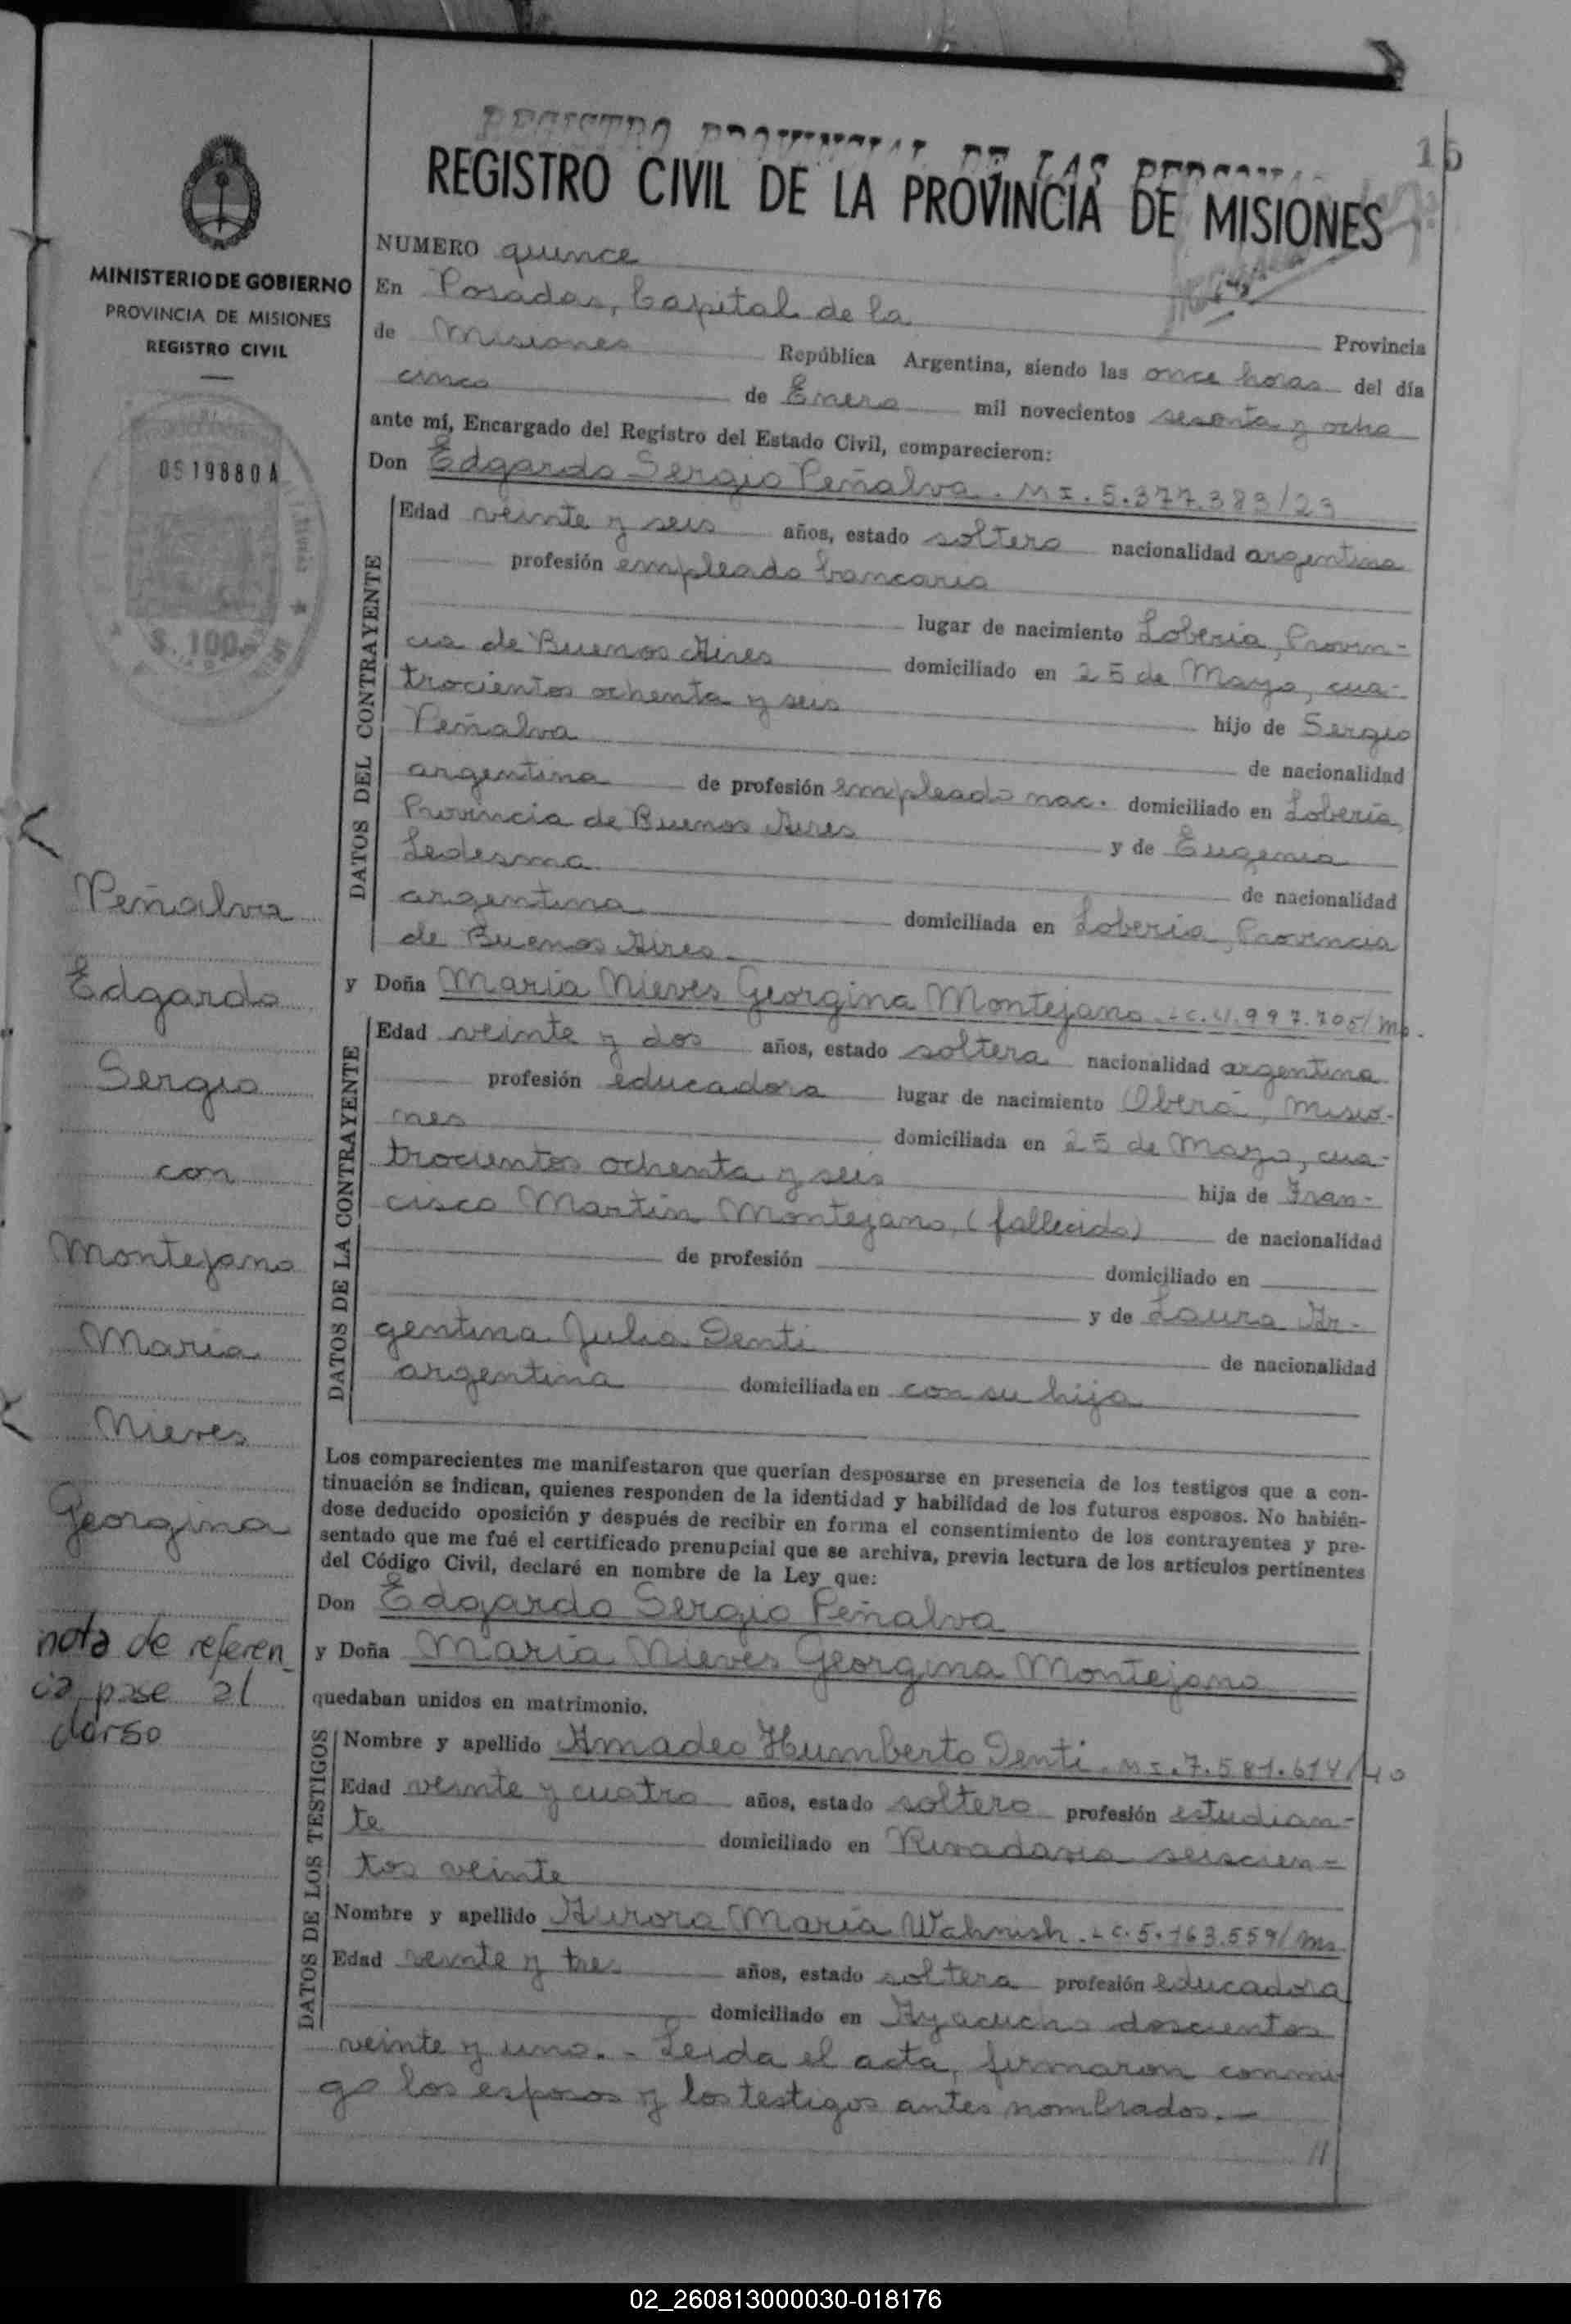 REGISTRO PROVINCIAL DE LAS PERSONAS
REGISTRO CIVIL DE LA PROVINCIA DE MISIONES
MINISTERIO DE GOBIERNO
PROVINCIA DE MISIONES
REGISTRO CIVIL
0519880 A
$. 100.-
NUMERO quince
En Posadas, Capital de la Provincia
de Misiones República Argentina, siendo las once horas del día
cinco de Enero mil novecientos sesenta y ocho
ante mí, Encargado del Registro del Estado Civil, comparecieron:
Don Edgardo Sergio Peñalva. M I. 5.377.383/23
DATOS DEL CONTRAYENTE
Edad veinte y seis años, estado soltero nacionalidad argentina
profesión empleado bancario
lugar de nacimiento Lobería, Provin-
cia de Buenos Aires domiciliado en 25 de Mayo, cua-
trocientos ochenta y seis hijo de Sergio
Peñalva de nacionalidad
argentina de profesión empleado nac. domiciliado en Lobería,
Provincia de Buenos Aires y de Eugenia
Ledesma de nacionalidad
argentina domiciliada en Lobería, Provincia
de Buenos Aires.
y Doña María Nieves Georgina Montejano. L C. 4.997.705/Ms.
DATOS DE LA CONTRAYENTE
Edad veinte y dos años, estado soltera nacionalidad argentina
profesión educadora lugar de nacimiento Oberá, Misio-
nes domiciliada en 25 de Mayo, cua-
trocientos ochenta y seis hija de Fran-
cisco Martín Montejano, (fallecido) de nacionalidad
de profesión domiciliado en
y de Laura Ar-
gentina Julia Denti de nacionalidad
argentina domiciliada en con su hija
Los comparecientes me manifestaron que querían desposarse en presencia de los testigos que a con-
tinuación se indican, quienes responden de la identidad y habilidad de los futuros esposos. No habién-
dose deducido oposición y después de recibir en forma el consentimiento de los contrayentes y pre-
sentado que me fué el certificado prenupcial que se archiva, previa lectura de los artículos pertinentes
del Código Civil, declaré en nombre de la Ley que:
Don Edgardo Sergio Peñalva
y Doña María Nieves Georgina Montejano
quedaban unidos en matrimonio.
DATOS DE LOS TESTIGOS
Nombre y apellido Amadeo Humberto Denti. M I. 7.581.614/40
Edad veinte y cuatro años, estado soltero profesión estudian-
te domiciliado en Rivadavia seiscien-
tos veinte
Nombre y apellido Aurora María Wahnish. L C. 5.163.559/Ms.
Edad veinte y tres años, estado soltera profesión educadora
domiciliado en Ayacucho doscientos
veinte y uno. - Leída el acta, firmaron conmi
go los esposos y los testigos antes nombrados. -
//
Peñalva
Edgardo
Sergio
con
Montejano
María
Nieves
Georgina
nota de referen
cia pase al
dorso
02_260813000030-018176